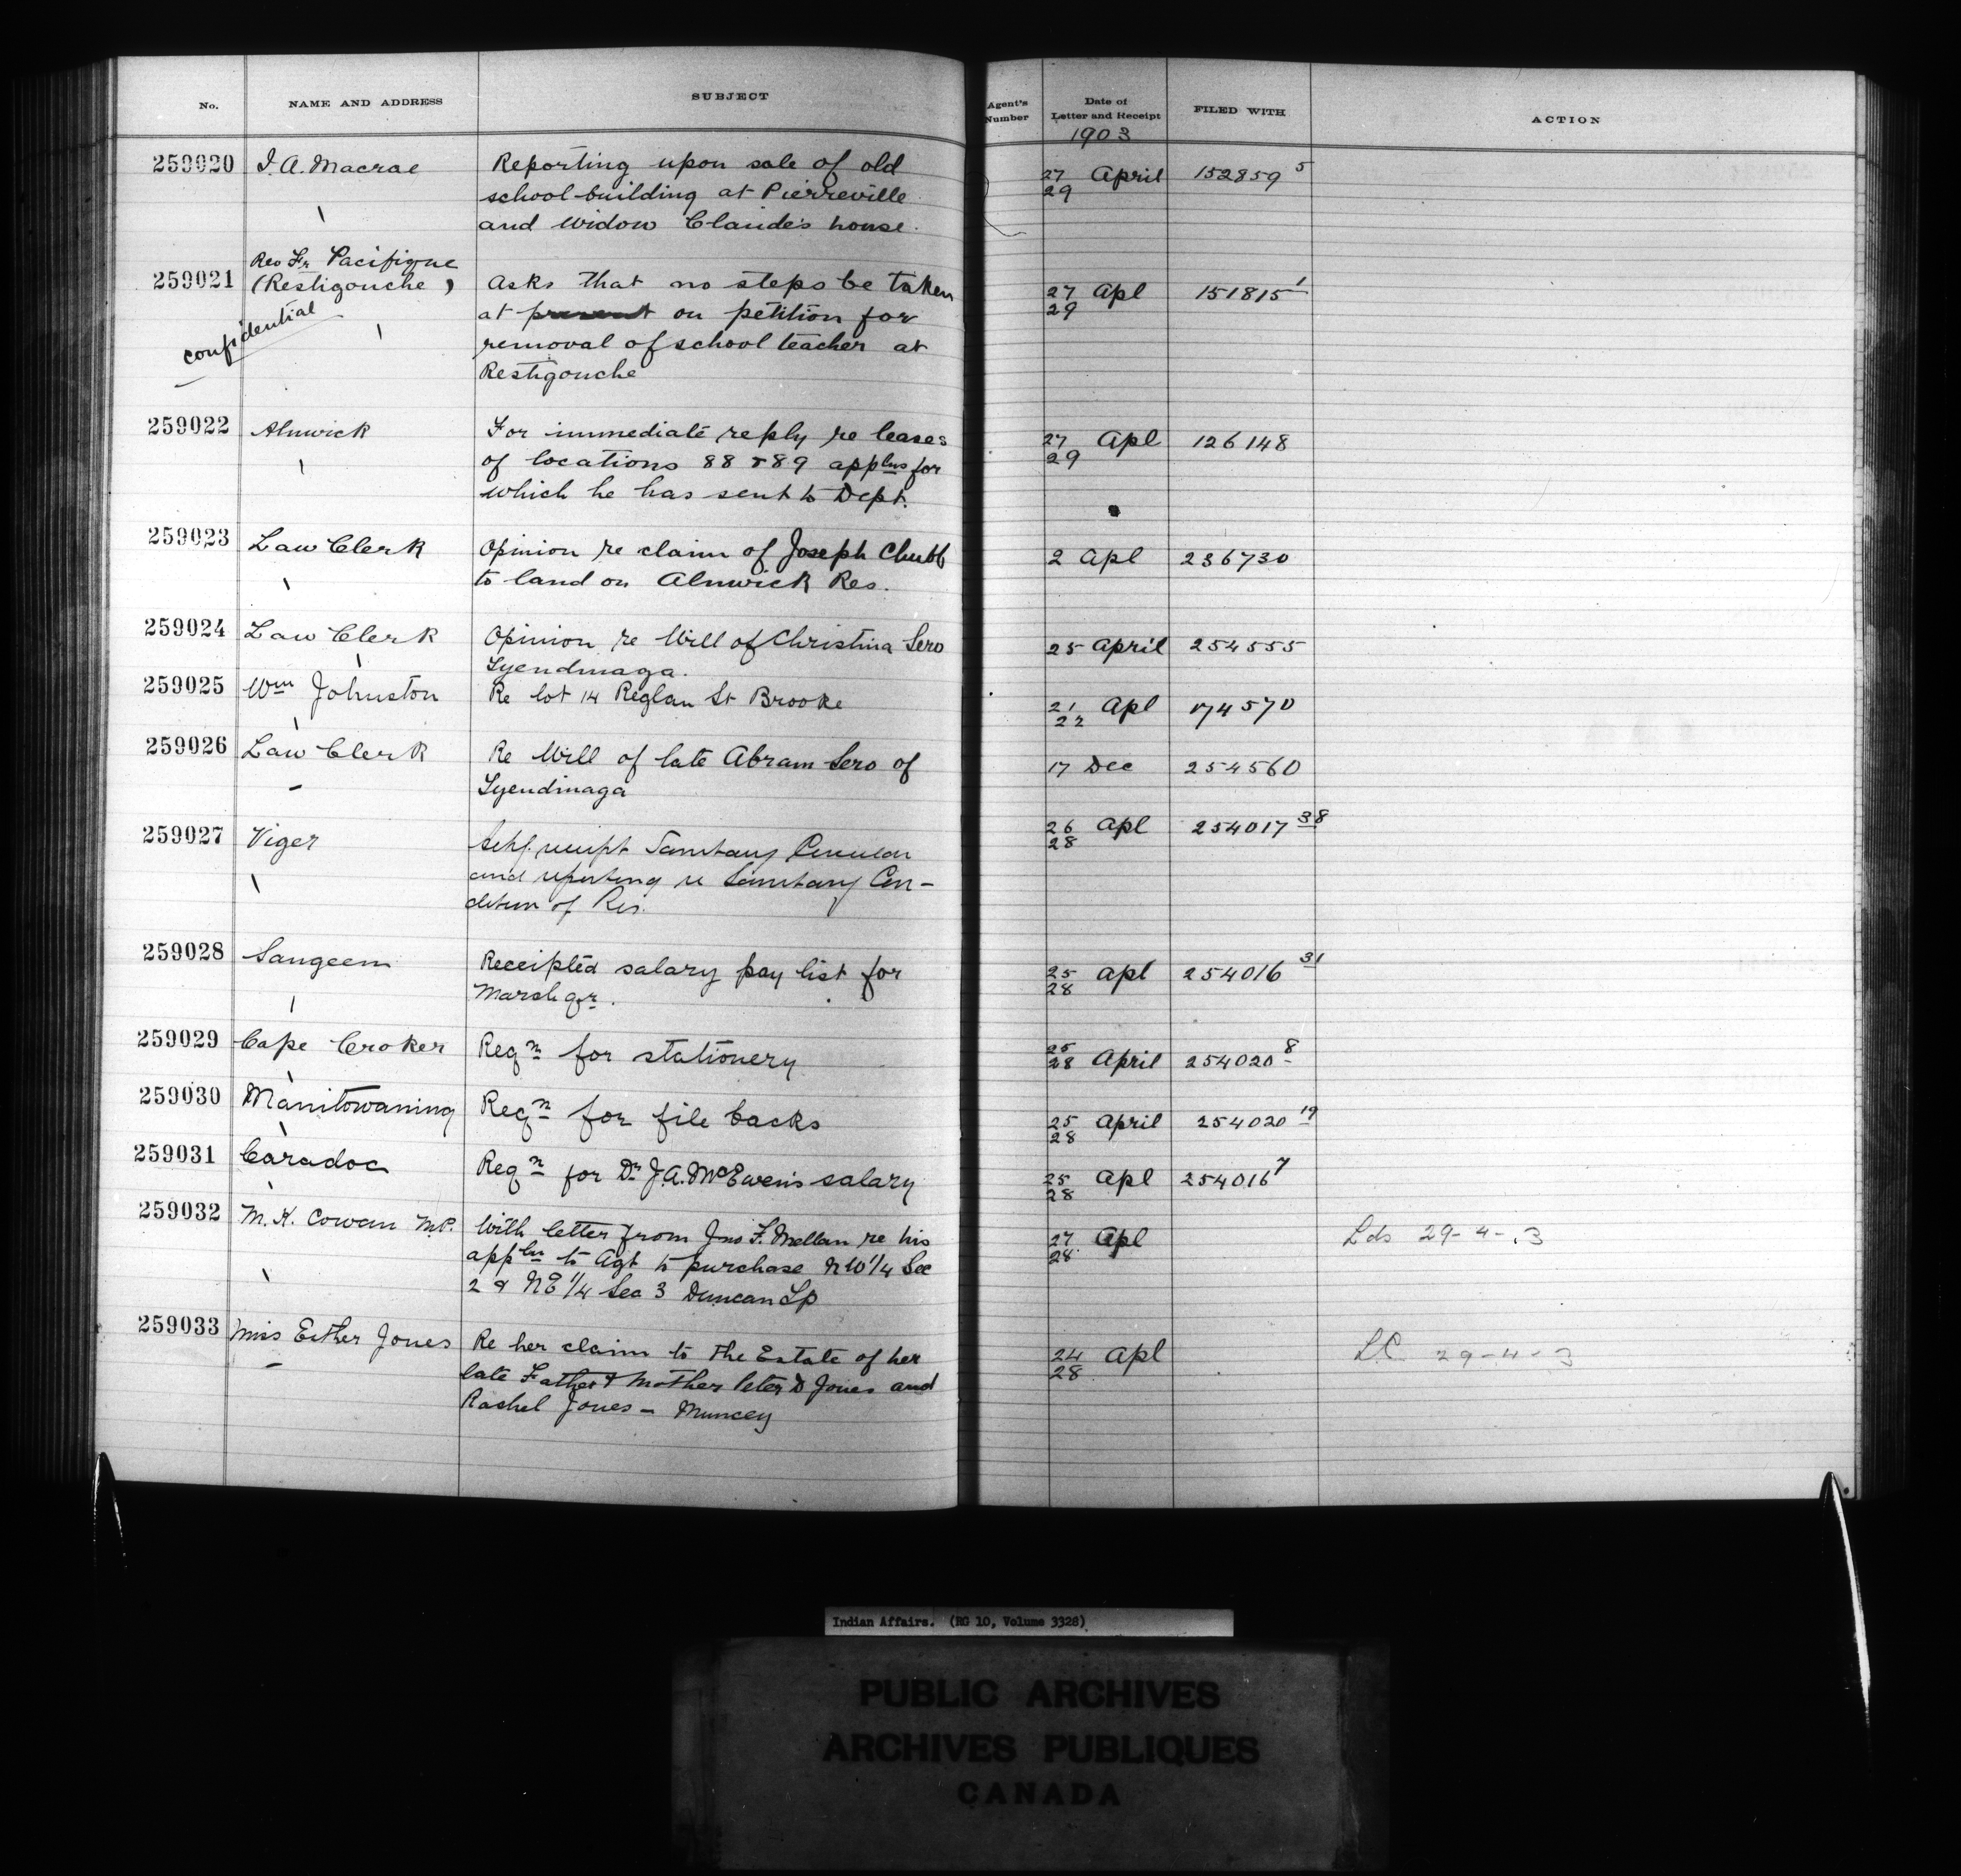 No. NAME AND ADDRESS SUBJECT Agent's Number Date of Letter and Receipt FILED WITH ACTION
1903
259020 J. A. Macrae Reporting upon sale of old 27 April 152859 5
school-building at Pierreville 29
and Widow Claude's house.
Rev Fr Pacifique
259021 (Restigouche) Asks that no steps be taken 27 Apl 151815 1
confidential at present on petition for 29
removal of school teacher at
Restigouche
259022 Alnwick For immediate reply re leases 27 Apl 126148
of locations 88 & 89 applns for 29
which he has sent to Dept.
259023 Law Clerk Opinion re claim of Joseph Chubb 2 Apl 236730
to land on Alnwick Res.
259024 Law Clerk Opinion re Will of Christina Sero 25 April 254555
Tyendinaga.
259025 Wm Johnston Re lot 14 Reglan St Brooke 21 Apl 174570
22
259026 Law Clerk Re Will of late Abram Sero of 17 Dec 254560
Tyendinaga
259027 Viger Ackg. receipt Sanitary Circular 26 Apl 254017 38
and reporting re Sanitary Con- 28
dition of Res.
259028 Saugeen Receipted salary pay list for 25 Apl 254016 31
March qr. 28
259029 Cape Croker Reqn for stationery 25 April 254020 8
28
259030 Manitowaning Reqn for file backs 25 April 254020 19
28
259031 Caradoc Reqn for Dr J. A. McEwen's salary 25 Apl 254016 7
28
259032 M. K. Cowan M.P. With letter from Jno F. Mellan re his 27 Apl Lds 29-4-.3
appln to Agt to purchase NW 1/4 Sec 28
2 & NE 1/4 Sec 3 Duncan Tp
259033 Miss Esther Jones Re her claim to the Estate of her 24 Apl LC 29-4-3
late Father & Mother Peter D Jones and 28
Rachel Jones - Muncey
Indian Affairs. (RG 10, Volume 3328)
PUBLIC ARCHIVES
ARCHIVES PUBLIQUES
CANADA